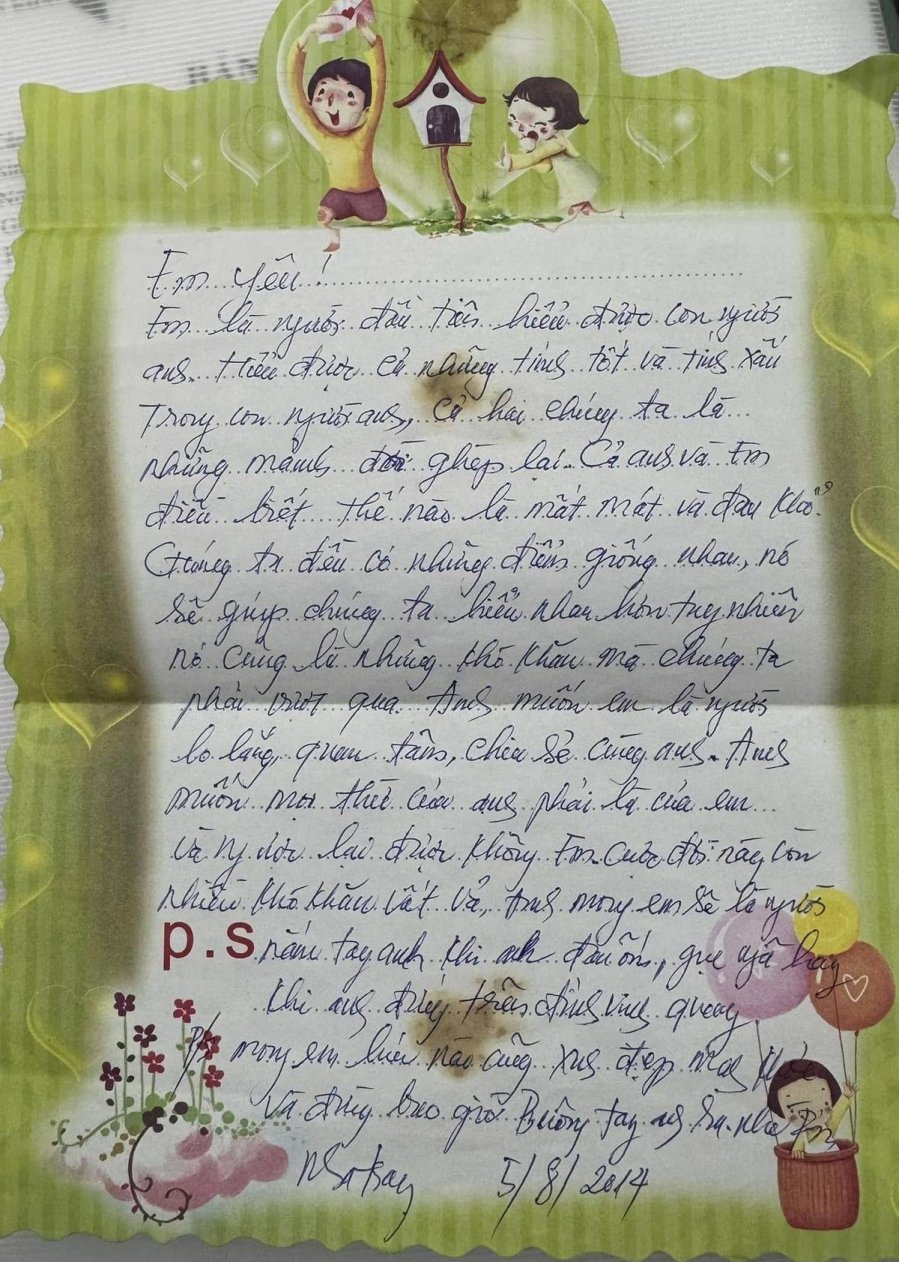 Em yêu!
Em là người đầu tiên hiểu được con người
anh. Hiểu được cả những tính tốt và tính xấu
Trong con người anh, cả hai chúng ta là
những mảnh đời ghép lại. Cả anh và Em
điều biết thế nào là mất mát và đau khổ.
Chúng ta đều có những điểm giống nhau, nó
sẽ giúp chúng ta hiểu nhau hơn tuy nhiên
nó cũng là những khó khăn mà chúng ta
phải vượt qua. Anh muốn em là người
lo lắng, quan tâm, chia sẻ cùng anh. Anh
muốn mọi thứ của anh phải là của em
và ngược lại được không Em. Cuộc đời này còn
nhiều khó khăn vất vả, Anh mong em sẽ là người
p.s nắm tay anh khi anh đau ốm, gục ngã hay
khi anh đứng trên đỉnh vinh quang
P/s mong em lúc nào cũng xinh đẹp mạnh khỏe
và đừng bao giờ Buông tay anh ra nhé Em
Nha trang 5/8/2014